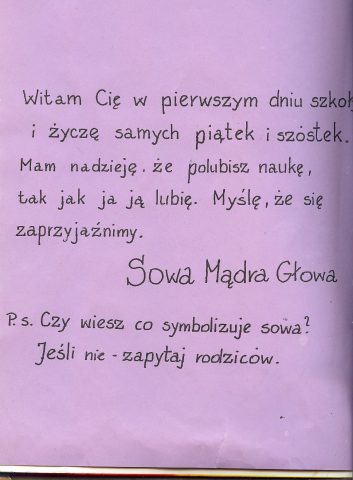 Witam Cię w pierwszym dniu szkoły
i życzę samych piątek i szóstek.
Mam nadzieję, że polubisz naukę,
tak jak ja ją lubię. Myślę, że się
zaprzyjaźnimy.
Sowa Mądra Głowa
P.s. Czy wiesz co symbolizuje sowa?
Jeśli nie - zapytaj rodziców.